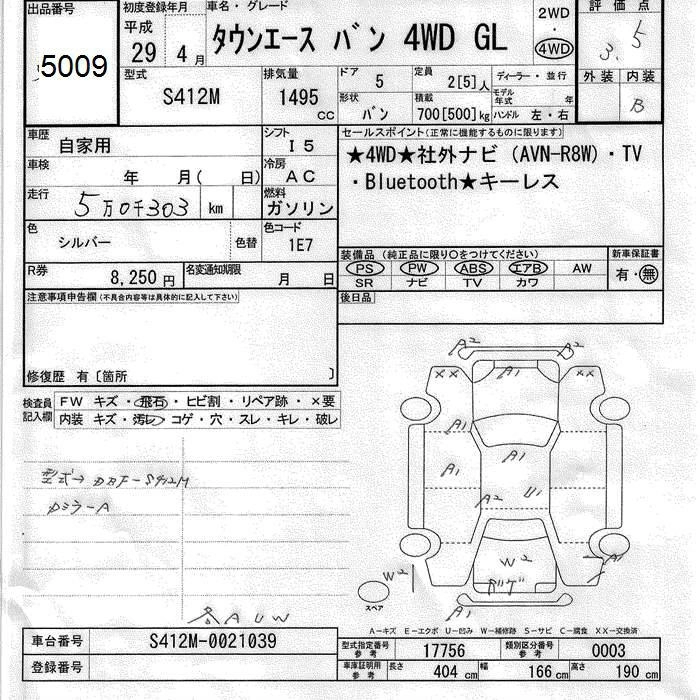 出品番号 初度登録年月 車名・グレード 評価点
5009 平成 29 4月 タウンエース バン 4WD GL 2WD 4WD 3.5
型式 排気量 ドア 5 定員 2[5]人 ディーラー・並行 外装 内装
S412M 1495 cc 形状 バン 積載 700[500]kg モデル年式 年 ハンドル 左・右 B
車歴 自家用 シフト I5 セールスポイント(正常に機能するものに限ります)
車検 年 月( 日) 冷房 AC ★4WD★社外ナビ (AVN-R8W)・TV
走行 5万0千303 km 燃料 ガソリン ・Bluetooth★キーレス
色 シルバー 色替 色コード 1E7
装備品 (純正品に限り○をつけてください) 新車保証書
R券 8,250円 名変通知期限 月 日 PS PW ABS エアB AW 有・無
SR ナビ TV カワ
注意事項申告欄(不具合内容等は具体的に記入して下さい) 後日品
修復歴 有〔箇所 〕
検査員記入欄 FW キズ・飛石・ヒビ割・リペア跡・×要
内装 キズ・汚レ・コゲ・穴・スレ・キレ・破レ
A2 A2
XX A1 XX
A1
A1 A1
A2 U1
型式→DBF-S412M
Dミラー A
W2
W2 A1
スペア
A1
A-キズ E-エクボ U-凹み W-補修跡 S-サビ C-腐食 XX-交換済
車台番号 S412M-0021039 型式指定番号 参考 17756 類別区分番号 参考 0003
登録番号 車庫証明用 参考 長さ 404 cm 幅 166 cm 高さ 190 cm